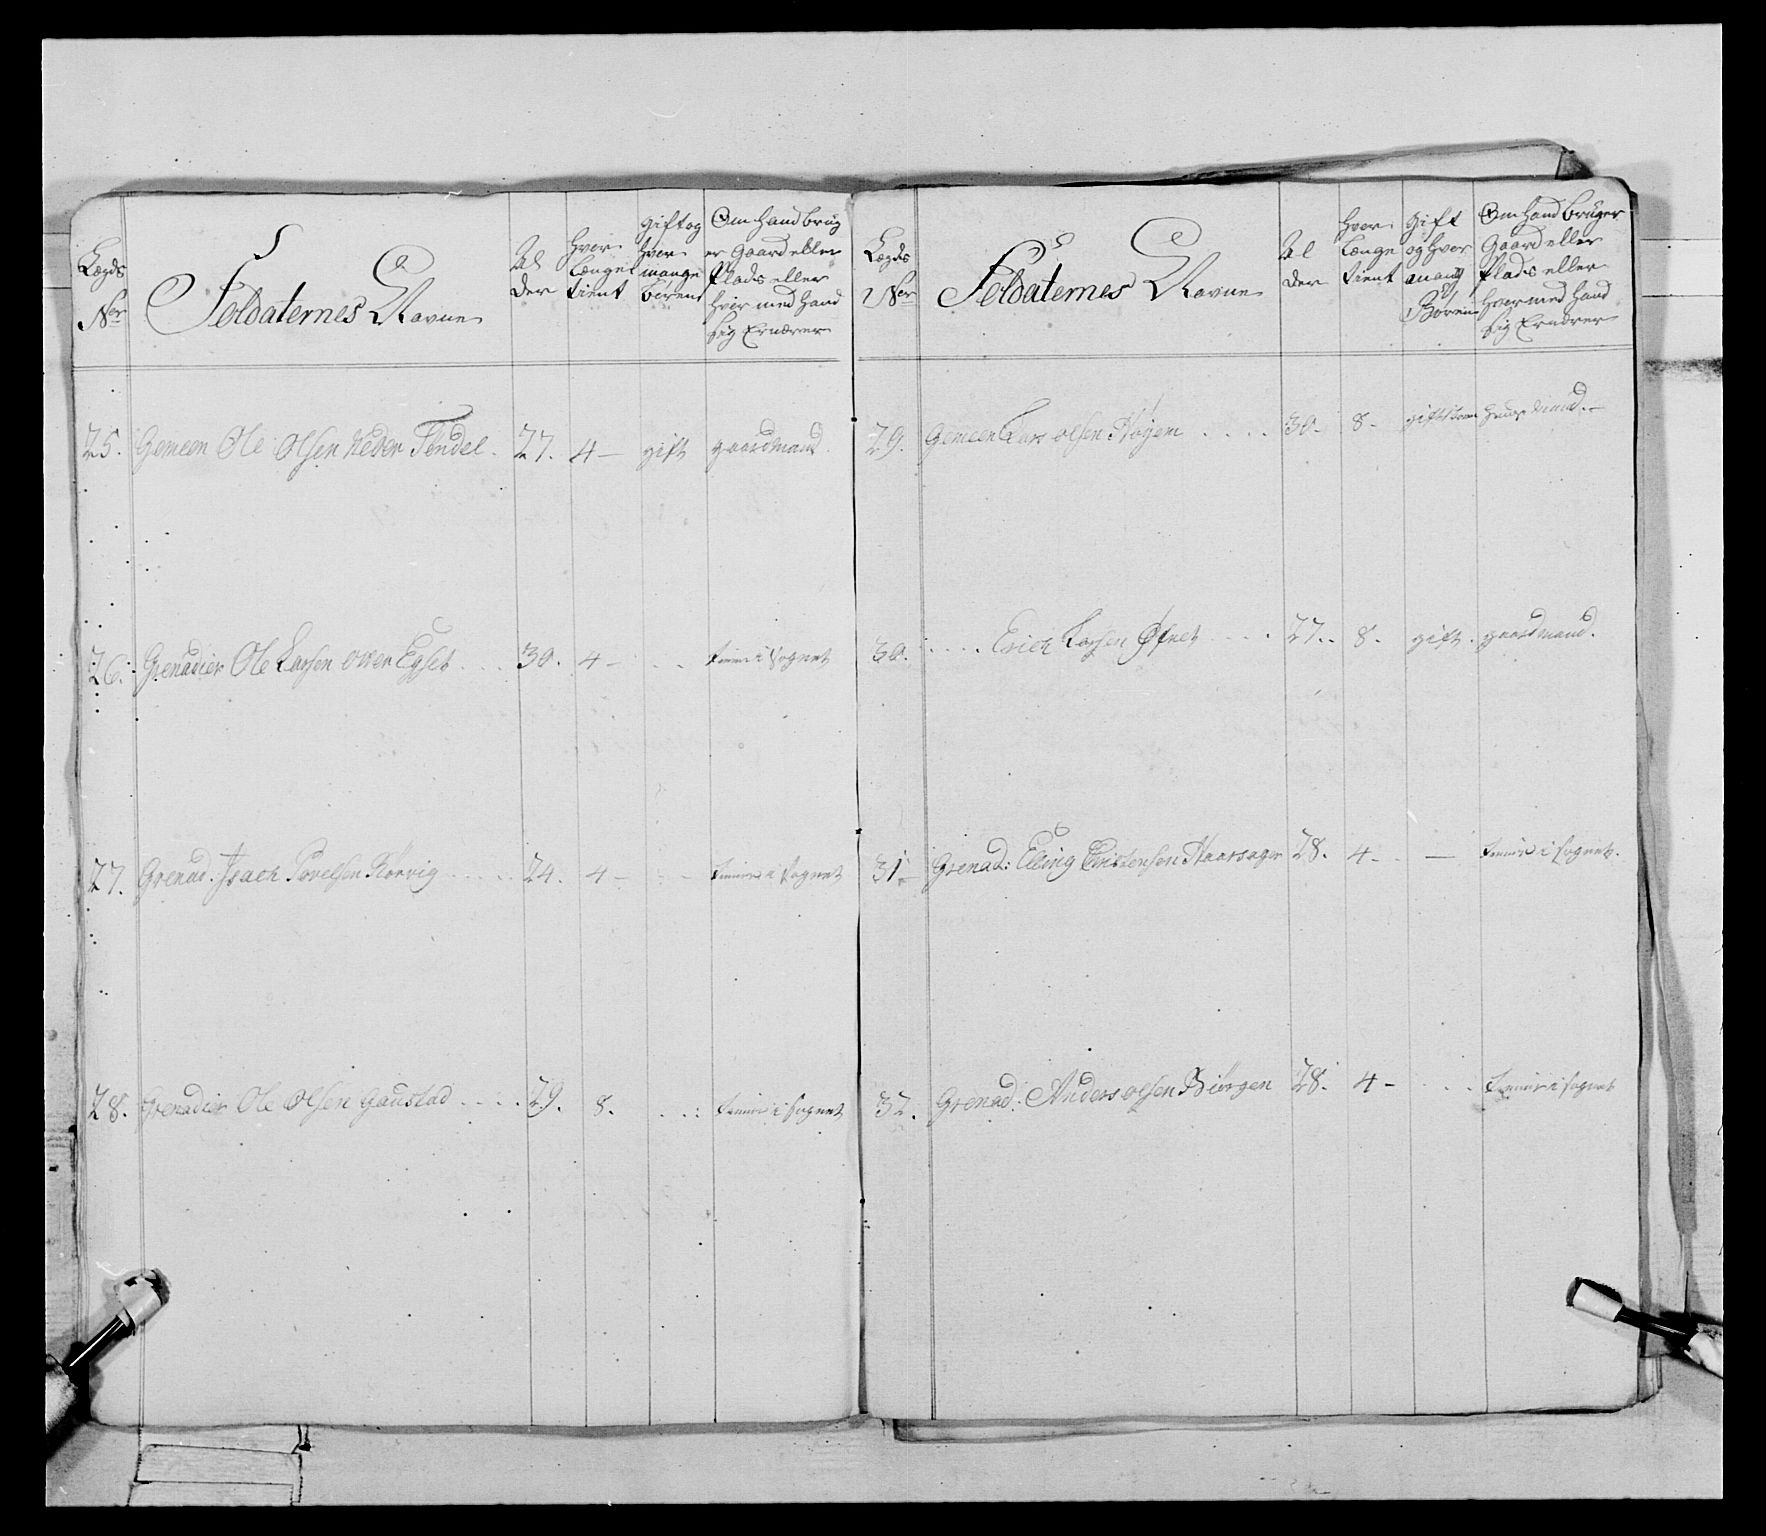 Lægds
Nor
Soldaternes Navne
Al
der
hvor
længe
tient
gift og
hver
mange
börent
Om hand brug
er gaard eller
Plads eller
hvor med hand
sig Ernærer
25. Gemeen Ole Olsen Neder Tendel. 27. 4 — gift gaardmand.
26. Grenadier Ole Larsen over Egset . . . 30. 4 — . . tiener i Sognet
27. Grenad. Isach Povelsen Rörvig . . . . . 24. 4 — tiener i Sognet
28. Grenadier Ole Olsen Gaustad . . . . 29. 8. . . . tiener i Sognet
Lægds
Nor
Soldaternes Navne
Al
der
hvor
længe
tient
gift
og hvor
mang
Börn
Om hand bruger
Gaard eller
Plads eller
hvor med hand
sig Ernærer
29. Gemeen Lars Olsen Höyem . . . . 30. 8. gift huusmand. —
30. . . . . . Erich Larsen Öfnet . . . . 27. . 8. gift. gaardmand.
31 — Grenad: Elling Christensen Haarsager 28. 4 — . — tiener i Sognet.
32. Grenad: Anders Olsen Biörgen 28. 4 — . . . tiener i Sognet